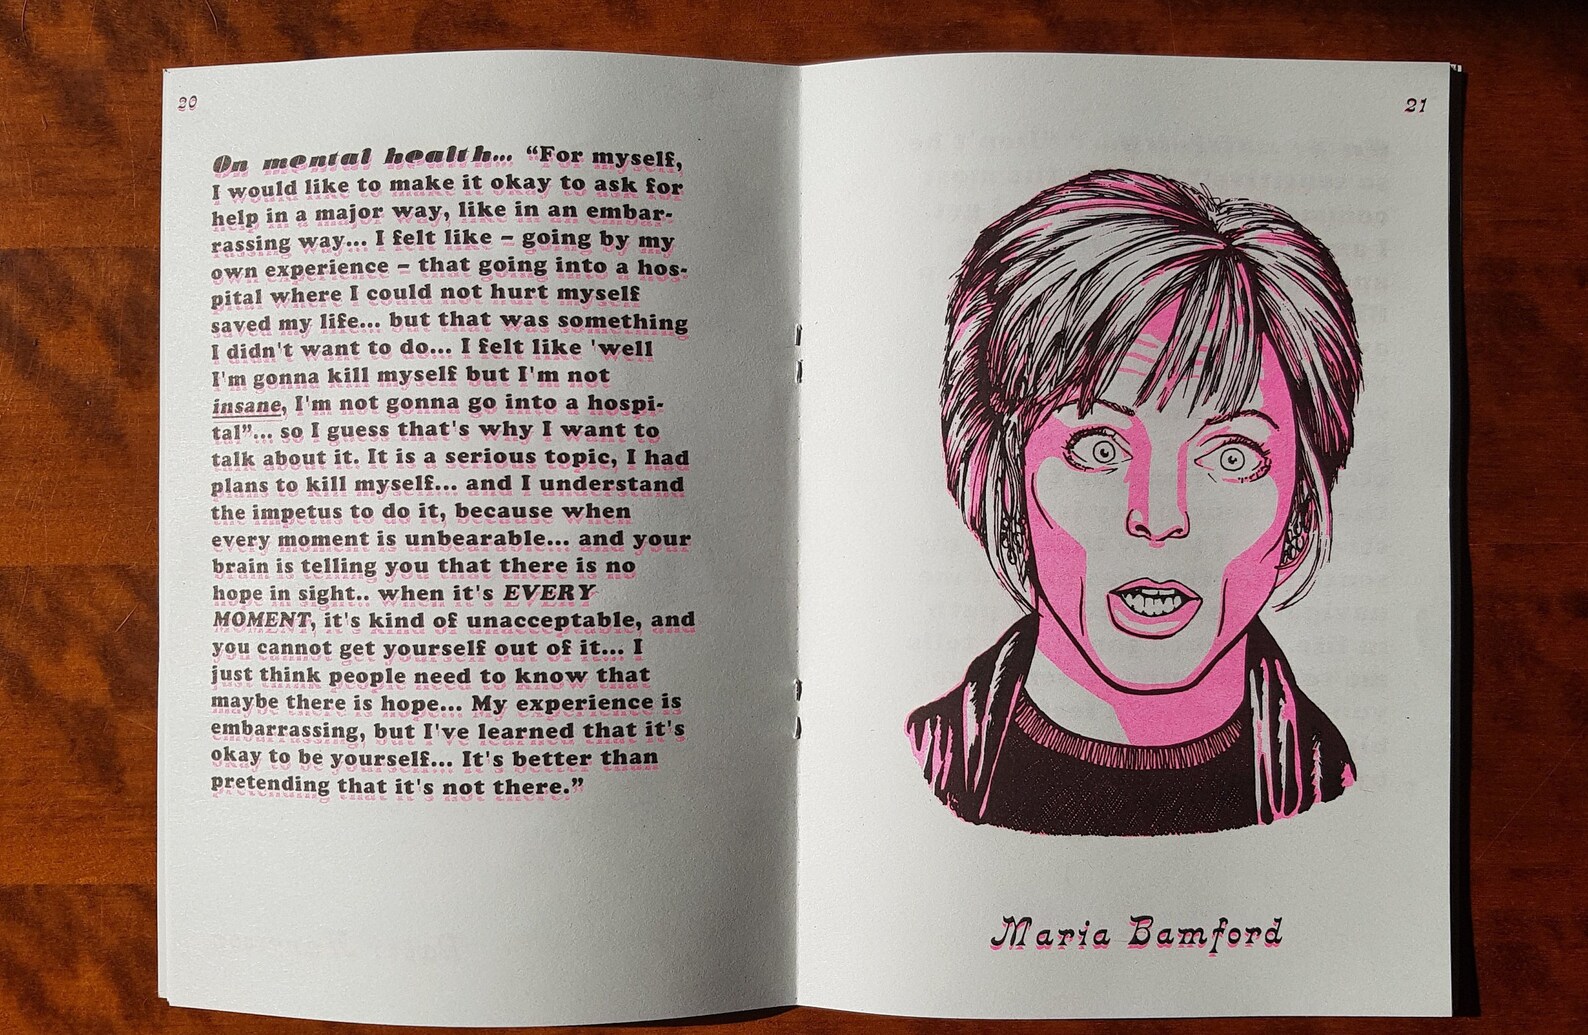 20
On mental health... “For myself,
I would like to make it okay to ask for
help in a major way, like in an embar-
rassing way... I felt like – going by my
own experience – that going into a hos-
pital where I could not hurt myself
saved my life... but that was something
I didn't want to do... I felt like 'well
I'm gonna kill myself but I'm not
insane, I'm not gonna go into a hospi-
tal”... so I guess that's why I want to
talk about it. It is a serious topic, I had
plans to kill myself... and I understand
the impetus to do it, because when
every moment is unbearable... and your
brain is telling you that there is no
hope in sight.. when it's EVERY
MOMENT, it's kind of unacceptable, and
you cannot get yourself out of it... I
just think people need to know that
maybe there is hope... My experience is
embarrassing, but I've learned that it's
okay to be yourself... It's better than
pretending that it's not there.”
21
Maria Bamford